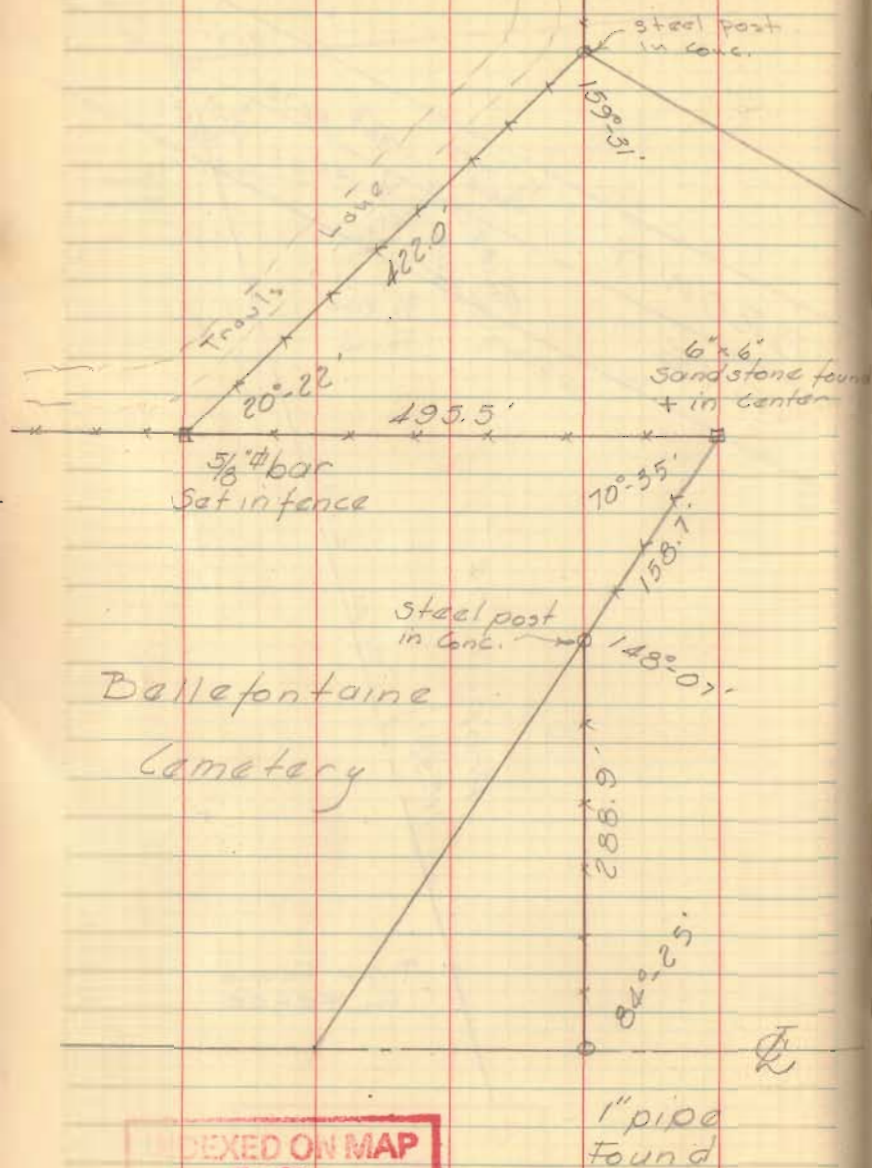 steel post
in conc.
159°-31'
Lane
422.0'
20°-22'
6"x6"
Sandstone found
+ in center
495.5'
5/8"ϕ bar
Set in fence
70°-35'
158.7'
Steel post
in conc.
148°-07'
Bellefontaine
Cemetery
288.9'
84°-25'
℄
1" pipe
Found
INDEXED ON MAP